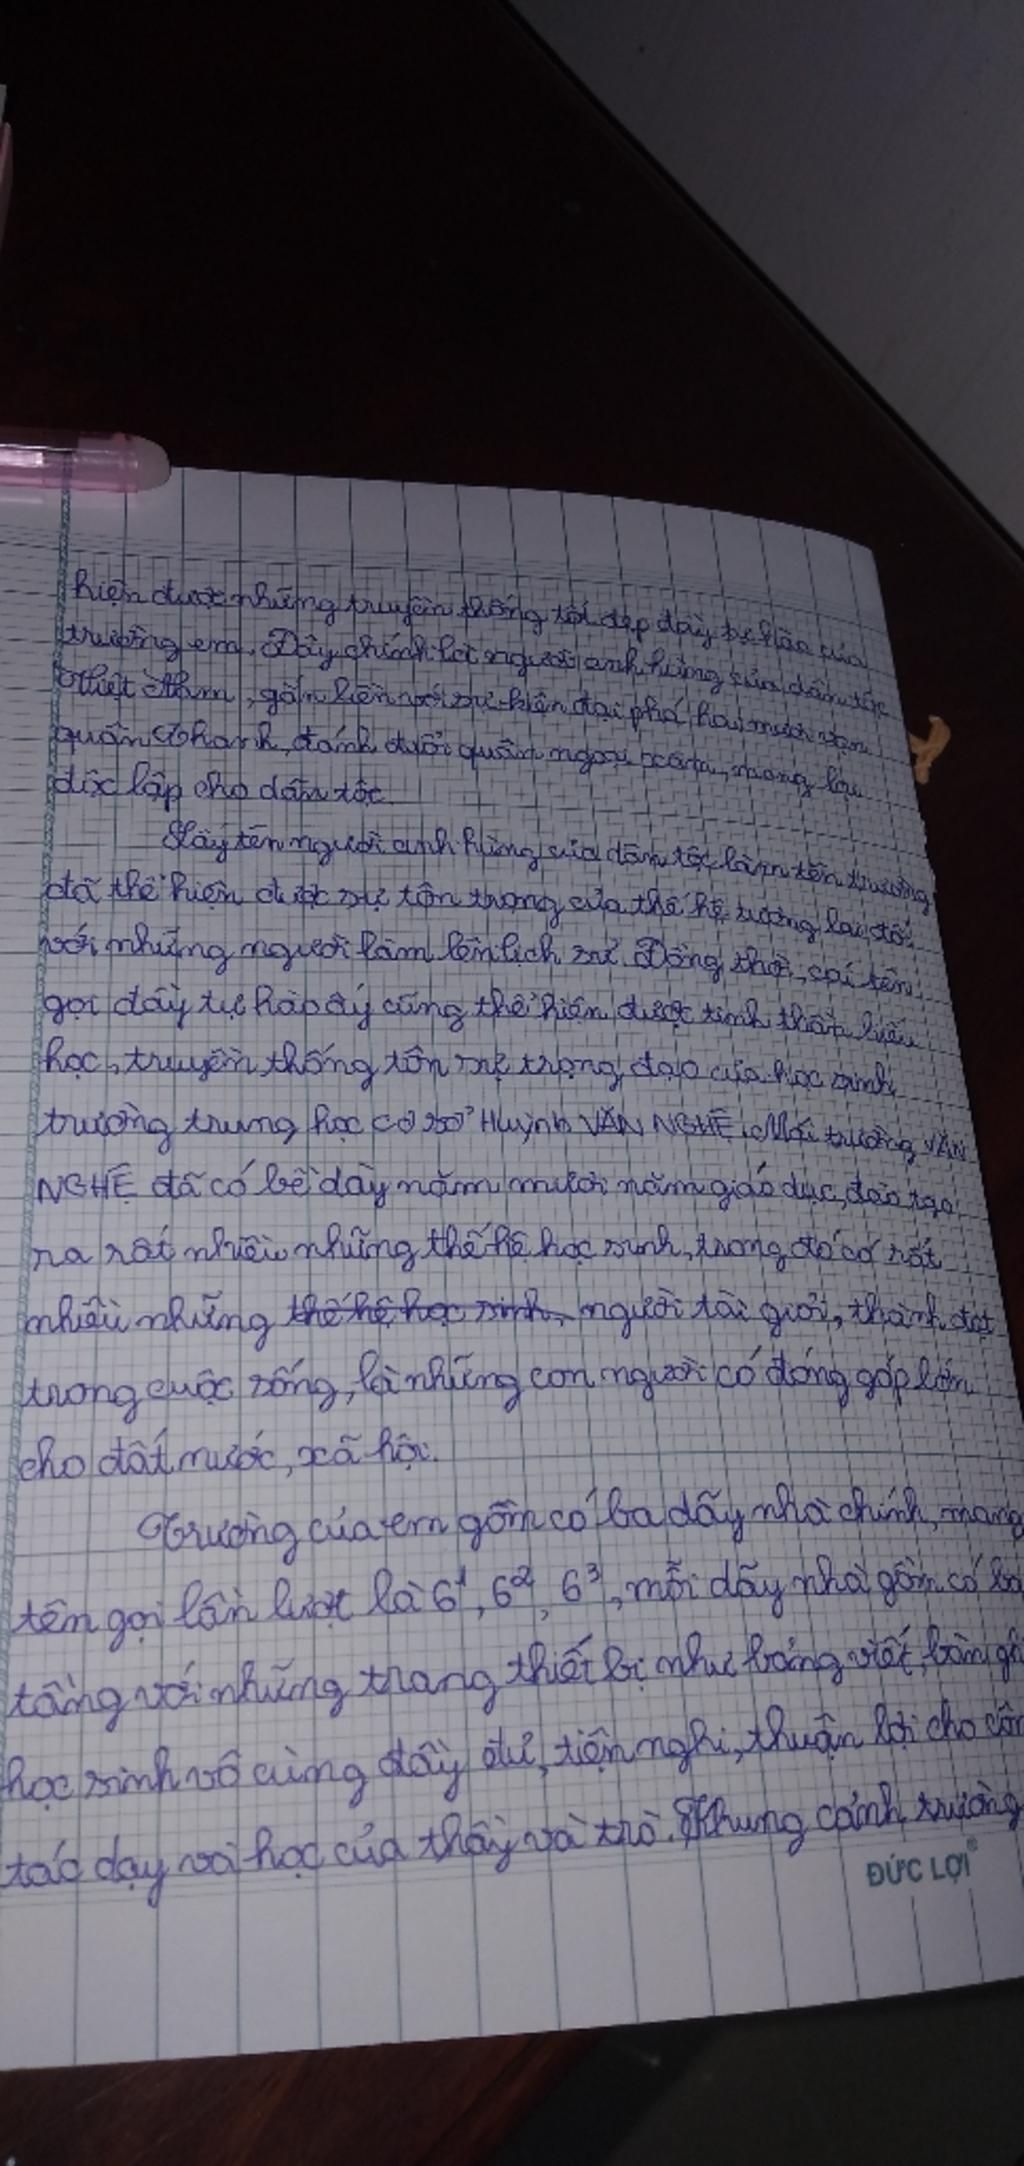 hiện được những truyền thống tốt đẹp đầy tự hào của
trường em. Đây chính là người anh hùng của dân tộc
Việt Nam, gắn liền với sự kiện đại phá hai mươi vạn
quân Thanh, đánh đuổi quân ngoại xâm, mang lại
độc lập cho dân tộc.
Lấy tên người anh hùng của dân tộc làm tên trường
đã thể hiện được sự tôn trọng của thế hệ tương lai đối
với những người làm lên lịch sử. Đồng thời, cái tên
gọi đầy tự hào ấy cũng thể hiện được tinh thần hiếu
học, truyền thống tôn sư trọng đạo của học sinh
trường trung học cơ sở Huỳnh VĂN NGHỆ. Mái trường VĂN
NGHỆ đã có bề dày năm mươi năm giáo dục, đào tạo
ra rất nhiều những thế hệ học sinh, trong đó có rất
nhiều những thế hệ học sinh, người tài giỏi, thành đạt
trong cuộc sống, là những con người có đóng góp lớn
cho đất nước, xã hội.
Trường của em gồm có ba dãy nhà chính, mang
tên gọi lần lượt là 6¹, 6², 6³, mỗi dãy nhà gồm có ba
tầng với những trang thiết bị như bảng viết, bàn ghế
học sinh vô cùng đầy đủ, tiện nghi, thuận lợi cho côn
tác dạy và học của thầy và trò. Khung cảnh trường
ĐỨC LỢI®